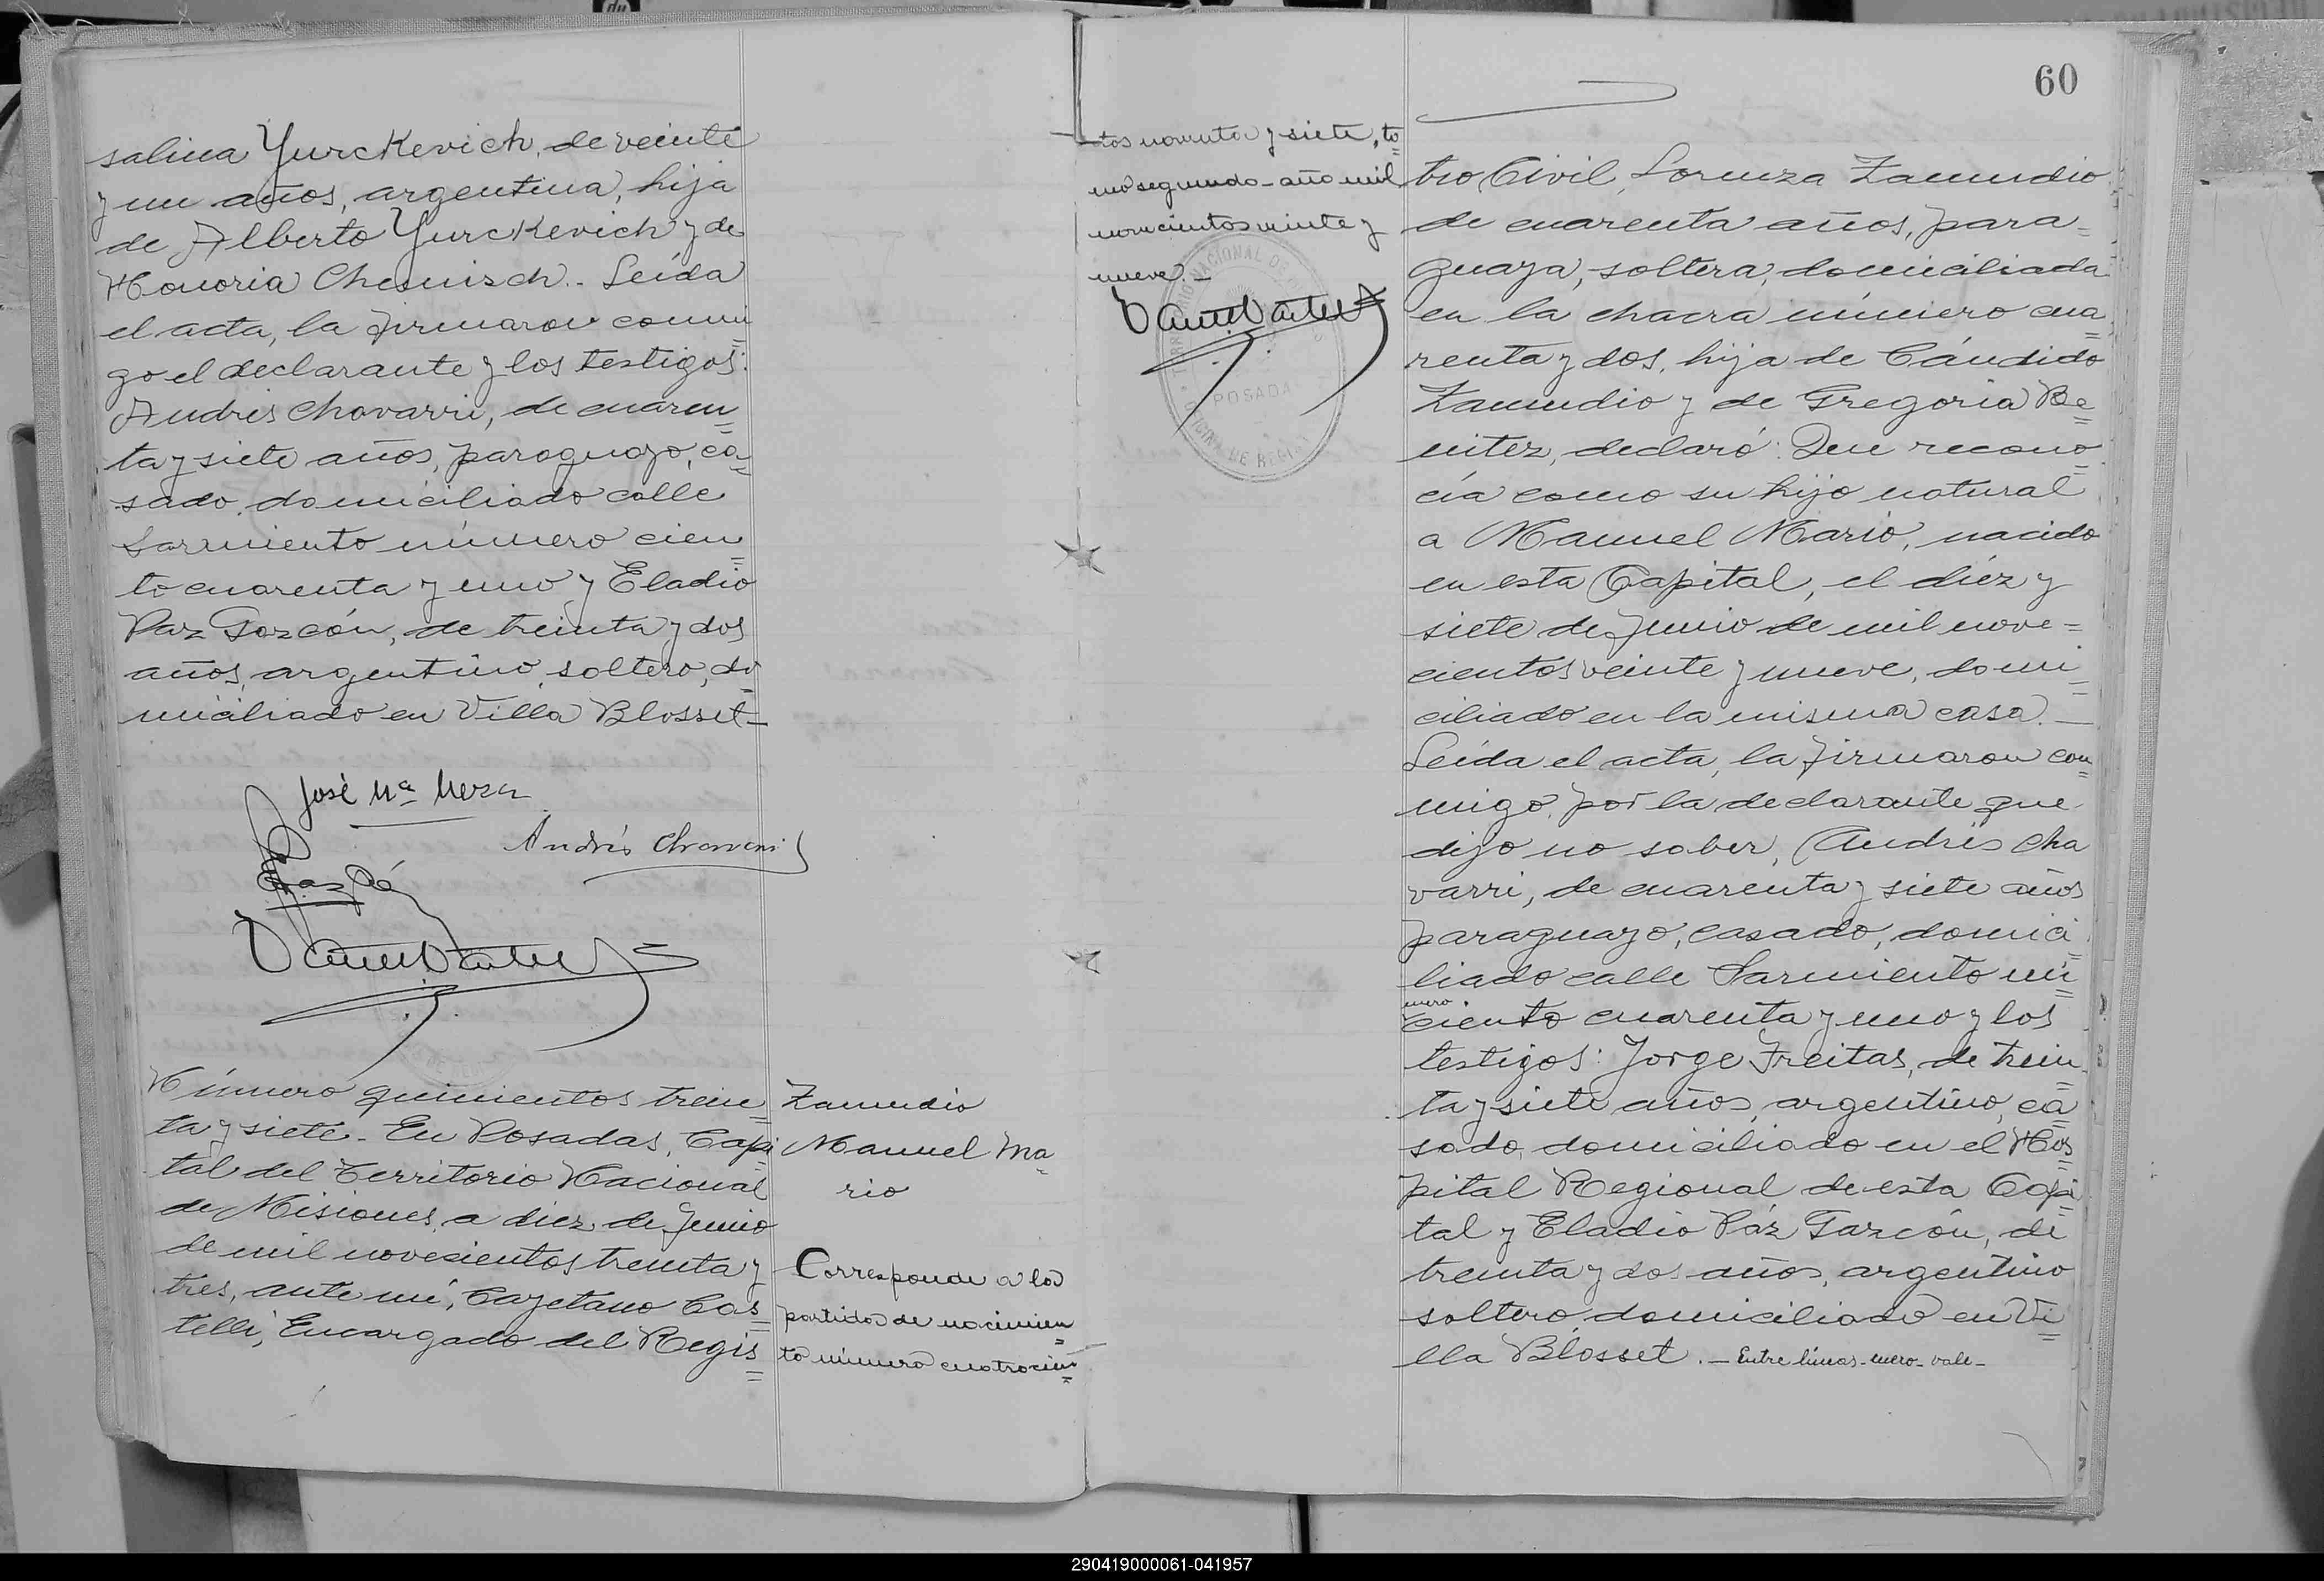 salina Yurckevich, de veinte
y un años, argentina, hija
de Alberto Yurckevich y de
Honoria Chemisch.- Leída
el acta, la firmaron conmi
go el declarante y los testigos:
Andrés Chavarri, de cuaren
ta y siete años, paraguayo, ca
sado, domiciliado calle
Sarmiento número cien
to cuarenta y uno y Eladio
Paz Garzón, de treinta y dos
años, argentino, soltero, do
miciliado en Villa Blosset-
José Mª Mera
Andrés Chavarri
Número quinientos trein
ta y siete.- En Posadas, Capi
tal del Territorio Nacional
de Misiones, a diez de Junio
de mil novecientos treinta y
tres, ante mí, Cayetano Cas
telli, Encargado del Regis
Zamudio
Manuel Ma
rio
Corresponde a la
partida de nacimien
to número cuatrocien
tos noventa y siete, to
mo segundo - año mil
novecientos veinte y
nueve.-
POSADAS
60
tro Civil, Lorenza Zamudio
de cuarenta años, para-
guaya, soltera, domiciliada
en la chacra número cua
renta y dos, hija de Cándido
Zamudio y de Gregoria Be
nitez, declaró: Que recono
cía como su hijo natural
a Manuel Mario, nacido
en esta Capital, el diéz y
siete de Junio de mil nove=
cientos veinte y nueve, domi
ciliado en la misma casa.-
Leída el acta, la firmaron con
migo, por la declarante que
dijo no saber, Andrés Cha
varri, de cuarenta y siete años
paraguayo, casado, domici
liado calle Sarmiento nú
mero
ciento cuarenta y uno y los
testigos: Jorge Freitas, de trein
ta y siete años, argentino, ca
sado, domiciliado en el Hos
pital Regional de esta Capi
tal y Eladio Páz Garzón, de
treinta y dos años, argentino
soltero, domiciliado en Vi
lla Blosset.- Entre líneas-mero-vale-
290419000061-041957